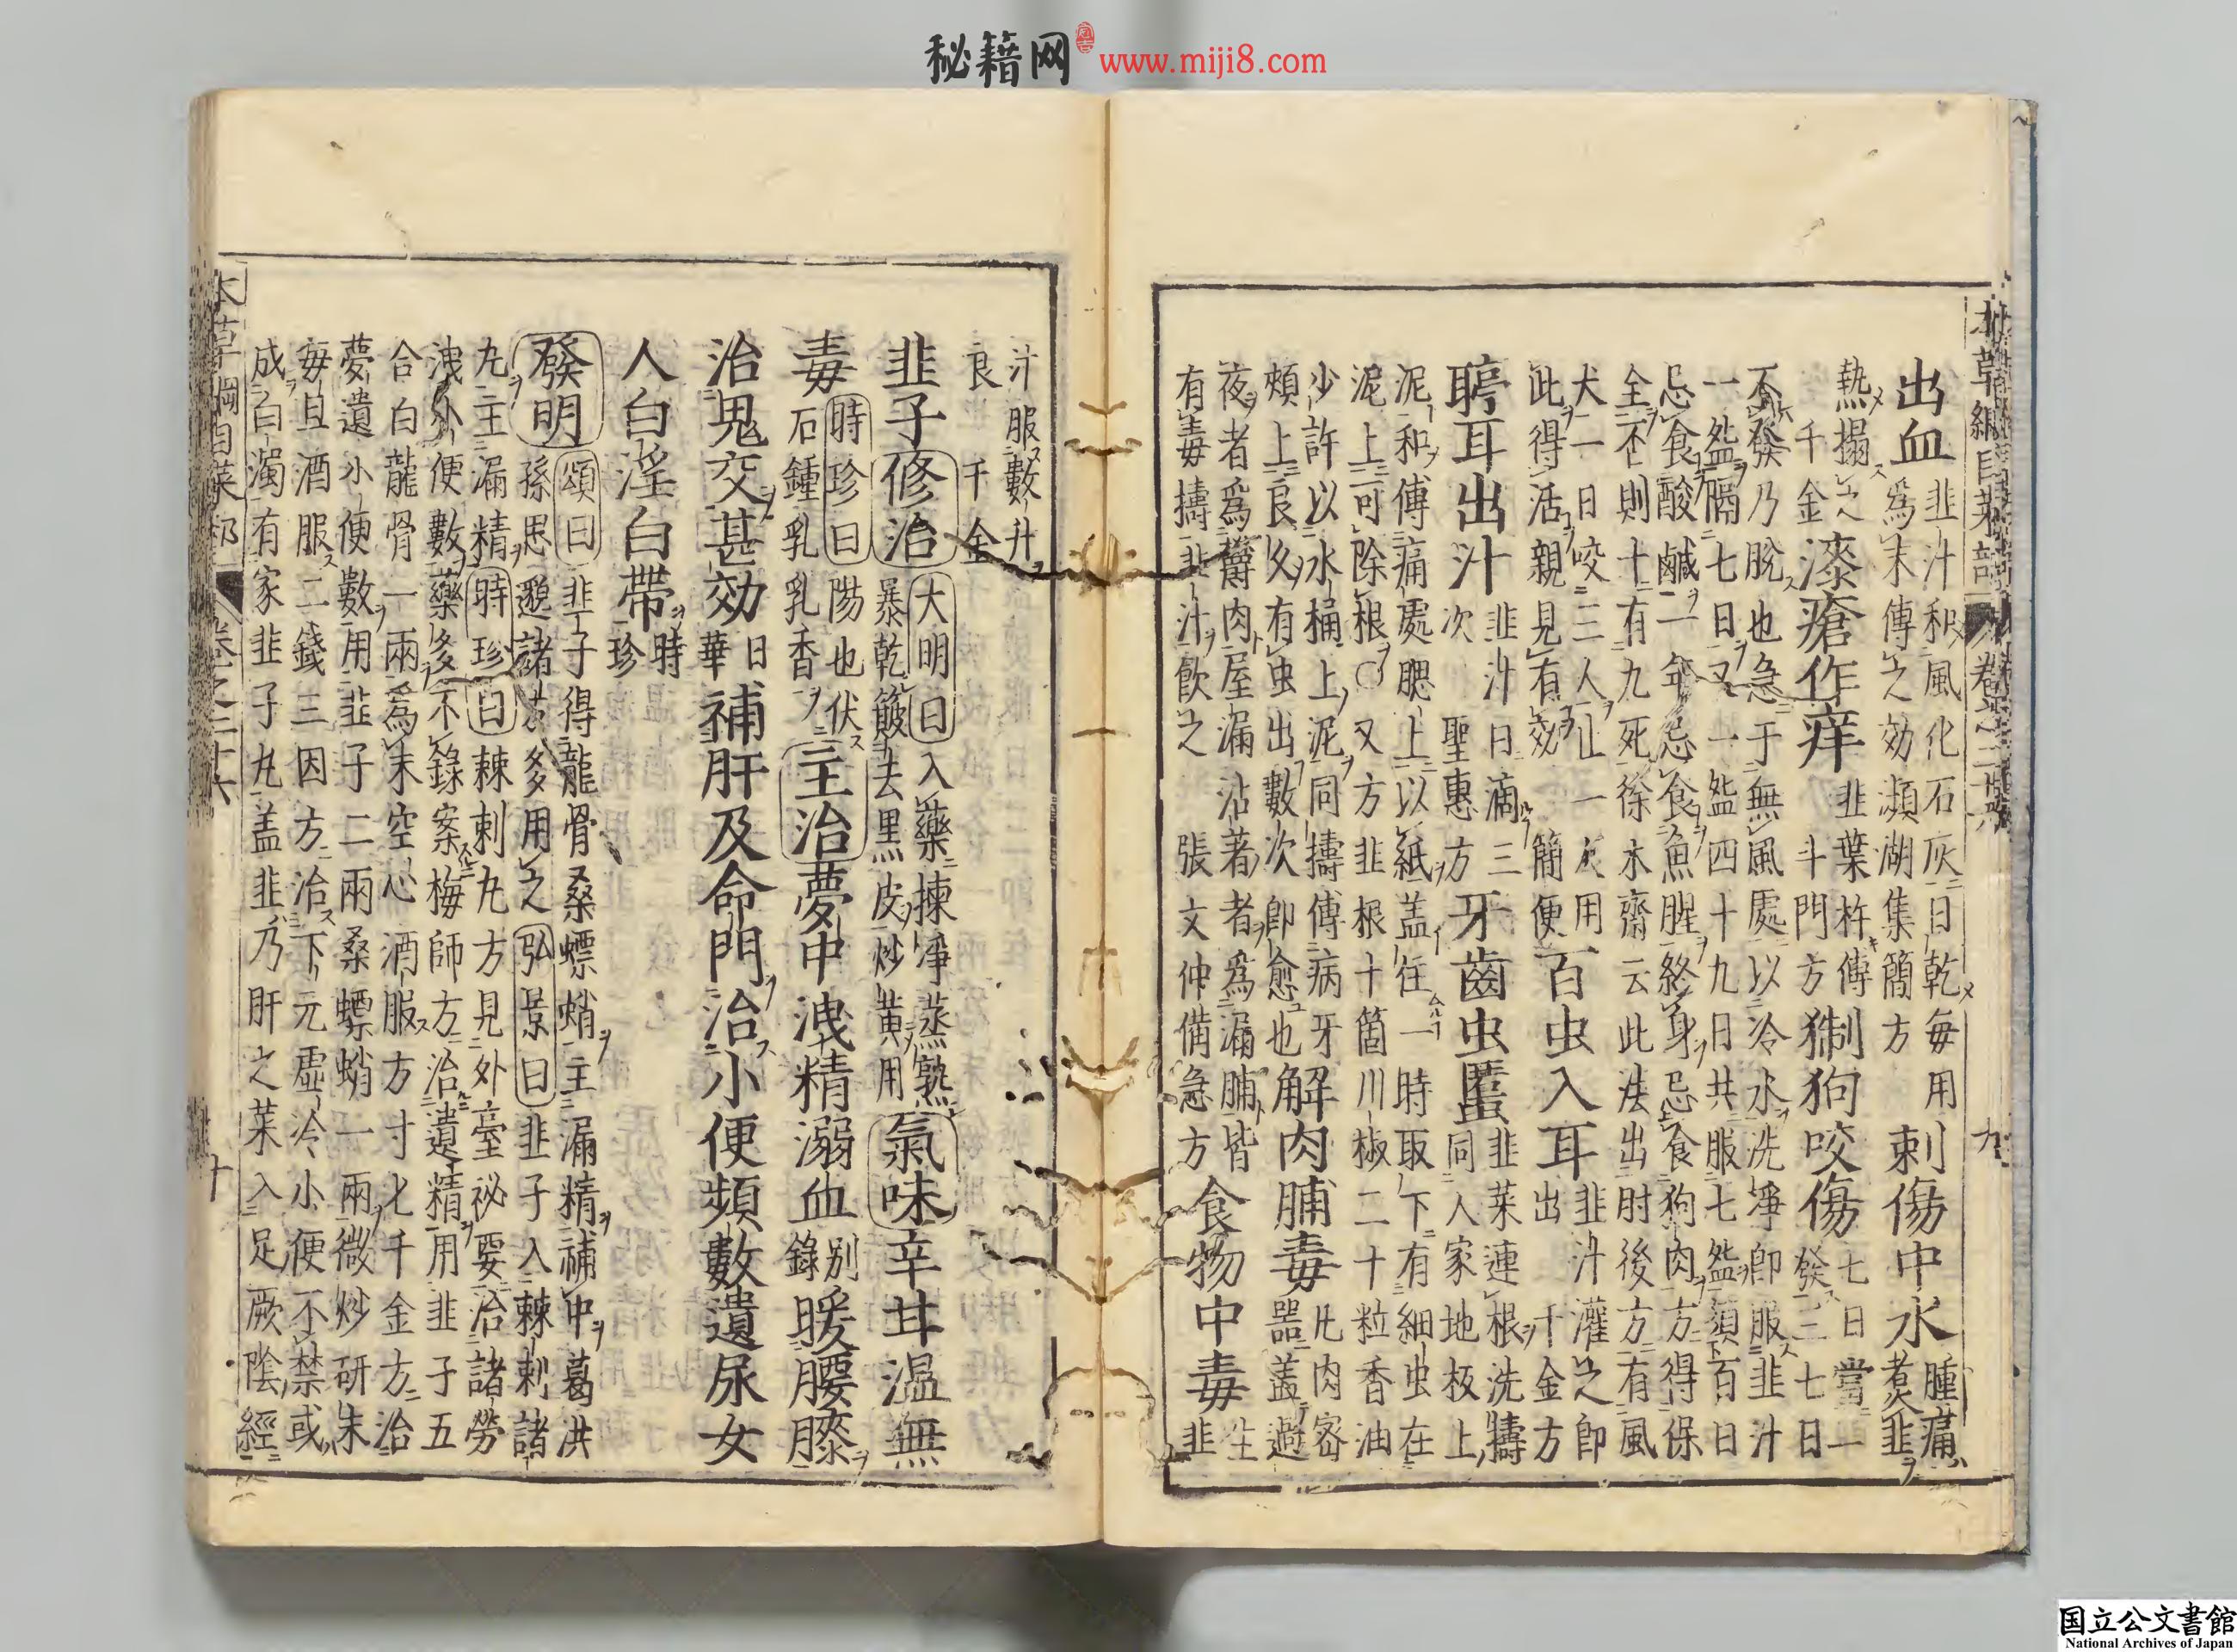 本草綱目菜部 卷之二十六 九
出血
韭汁和風化石灰日乾每用
為末傅之効瀕湖集簡方
刺傷中水
腫痛
煮韭
熱搨之
千金
漆瘡作痒
韭葉杵傅
斗門方
猘狗咬傷
七日當一
發三七日
不發乃脫也急于無風處以冷水洗淨即服韭汁
一盌隔七日又一盌四十九日共服七盌須百日
忌食酸鹹一年忌食魚腥終身忌食狗肉方得保
全不則十有九死徐本齋云此法出肘後方有風
犬一日咬三人止一人用
此得活親見有効 簡便
百虫入耳
韭汁灌之即
出 千金方
聤耳出汁
韭汁日滴三
次 聖惠方
牙齒虫䘌
韭菜連根洗擣
同人家地板上
泥和傅痛處腮上以紙盖住一時取下有細虫在
泥上可除根○又方韭根十箇川椒二十粒香油
少許以水桶上泥同擣傅病牙
頰上良久有虫出數次即愈也
解肉脯毒
凡肉密
噐盖過
夜者為鬱肉屋漏沾著者為漏脯皆
有毒擣韭汁飲之 張文仲備急方
食物中毒
生
韭
汁服數升
良 千金
韭子修治
大明曰入藥揀淨蒸熟
暴乾簸去黑皮炒黃用
氣味辛甘溫無
毒
時珍曰陽也伏
石鍾乳乳香
主治夢中洩精溺血
別
錄
暖腰膝
治鬼交甚効
日
華
補肝及命門治小便頻數遺尿女
人白淫白帶
時
珍
發明
頌曰韭子得龍骨桑螵蛸主漏精補中葛洪
孫思邈諸方多用之弘景曰韭子入棘刺諸
丸主漏精時珍曰棘刺丸方見外臺祕要治諸勞
洩外便數藥多不錄案梅師方治遺精用韭子五
合白龍骨一兩為末空心酒服方寸匕千金方治
夢遺小便數用韭子二兩桑螵蛸一兩微炒研末
每旦酒服二錢三因方治下元虛冷小便不禁或
成白濁有家韭子丸盖韭乃肝之菜入足厥陰經
本草綱目菜部 卷之二十六 十
秘籍网 www.miji8.com
国立公文書館
National Archives of Japan